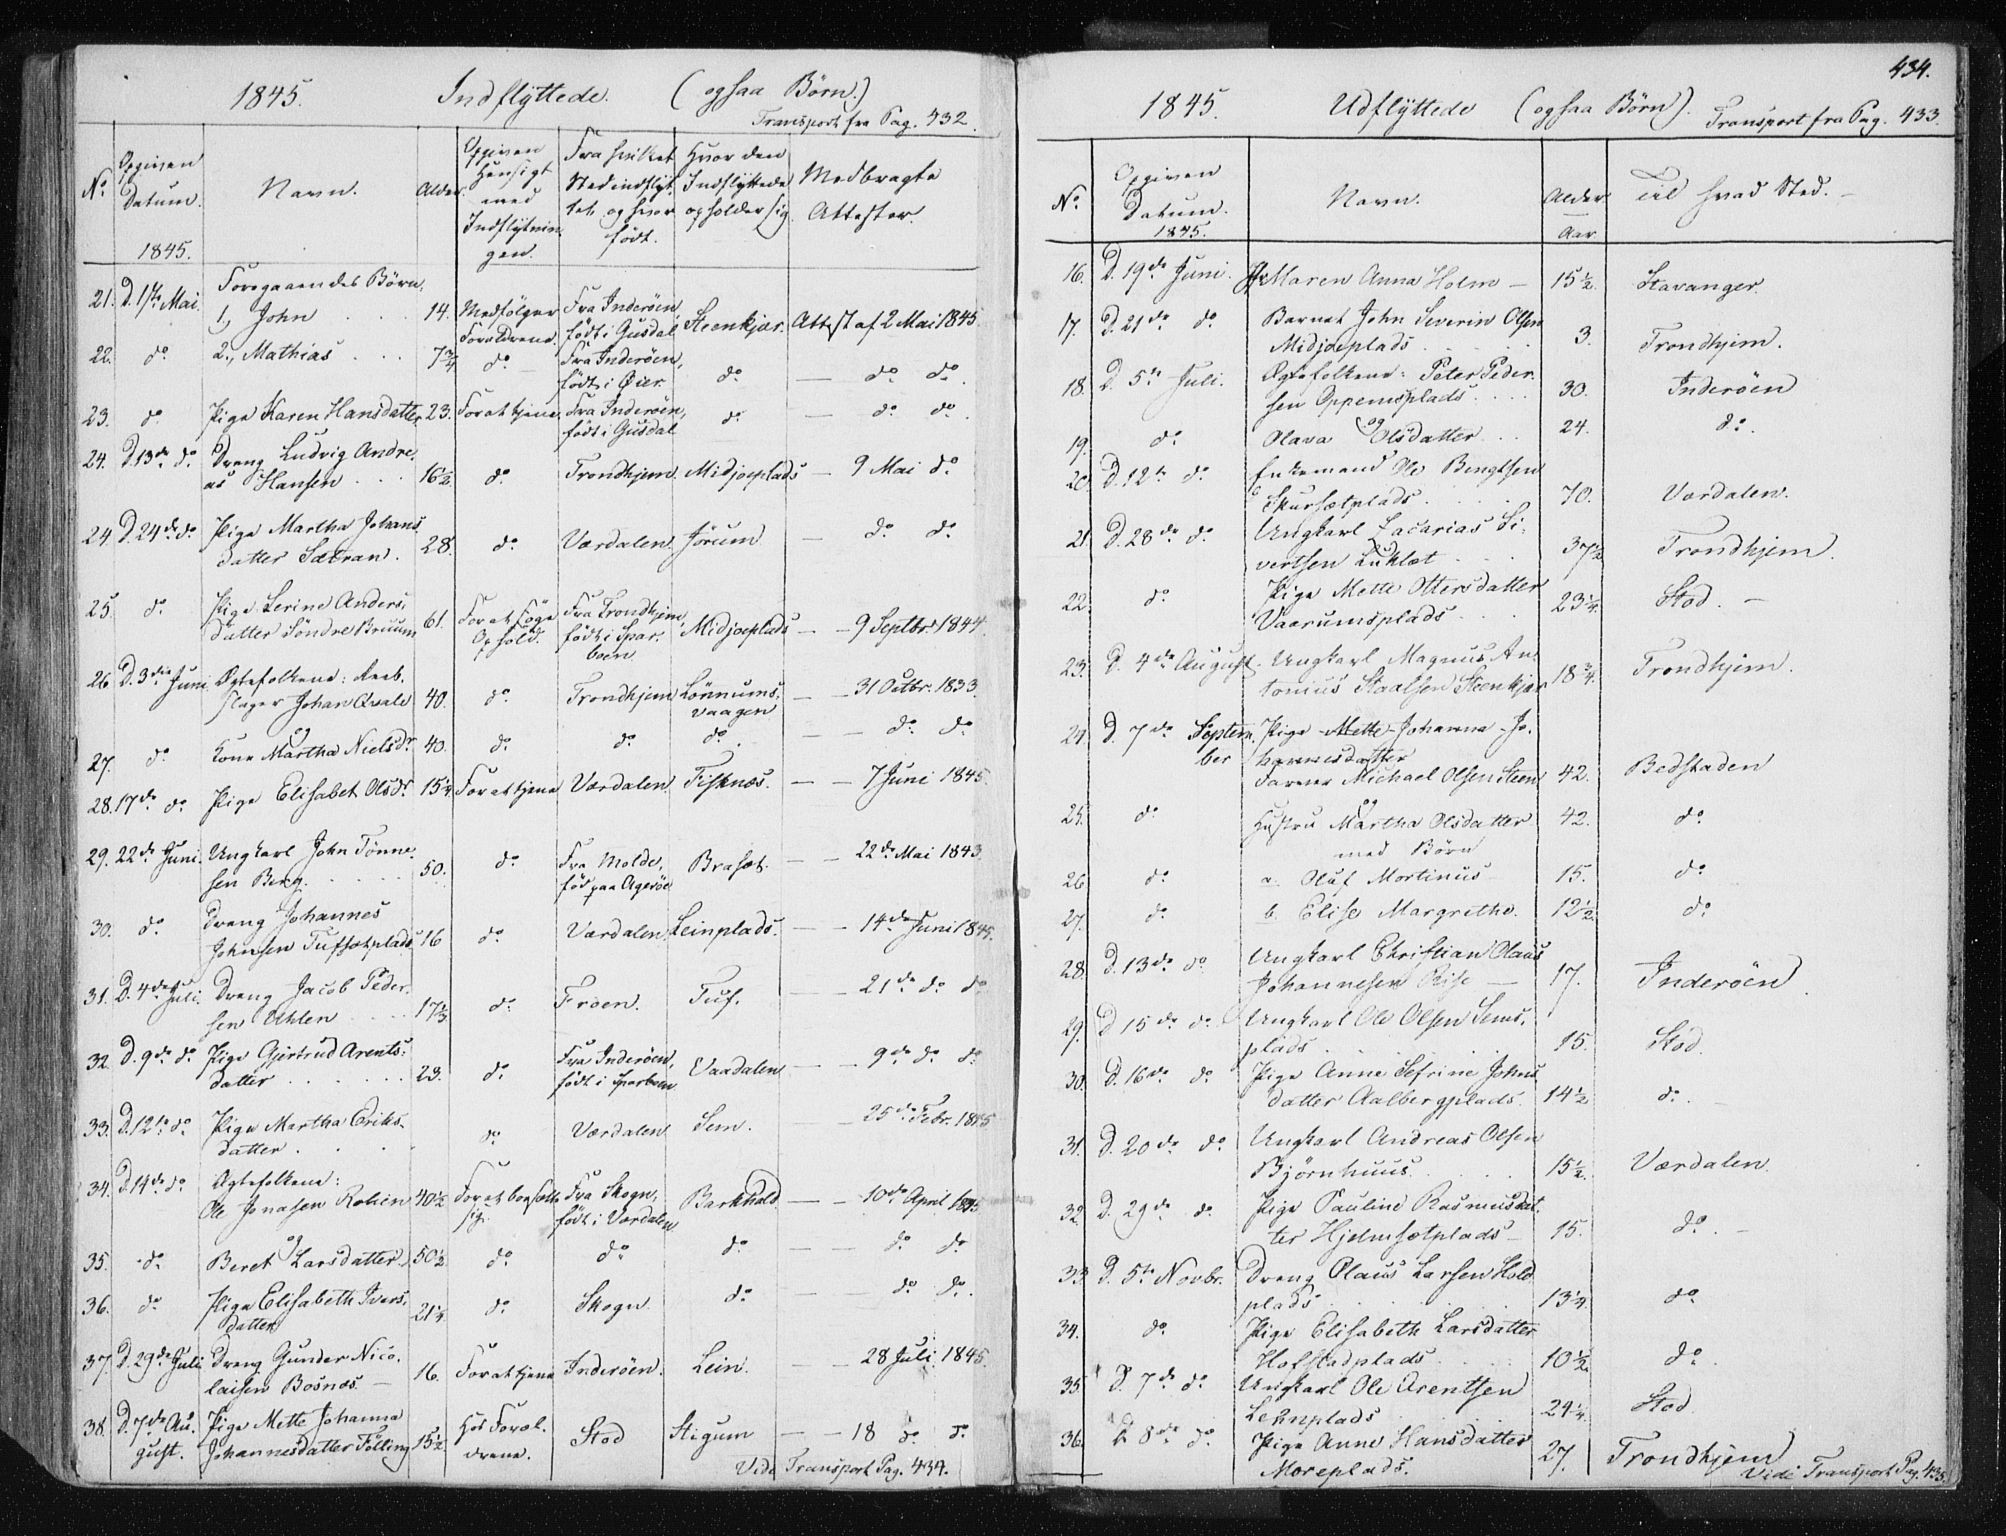 1845. Indflyttede. (ogsaa Børn.)
Transport fra Pag. 432.
No. Opgiven Datum. Navn. Alder. Opgiven Hensigt med Indflytningen. Fra hvilket Sted indflyttet og hvor født. Hvor den Indflyttede opholder sig. Medbragte Attester.
1845.
21. D. 1ste Mai. Foregaaendes Børn,
1, John 14. Medfølger Forældrene. Fra Inderøen, født i Gusdal Steenkjær. Attest af 2 Mai 1845.
22. do 2, Mathias 7 3/4 do Fra Inderøen, født i Øier. do — do do.
23. do Pige Karen Hansdatter 23. For at tjene Fra Inderøen, født i Gusdal do — do do.
24. D. 13de do Dreng Ludvig Andre-
as Hansen 16 1/2. do Trondhjem Midjoeplads — 9 Mai do
24. D. 24de do Pige Martha Johans-
datter Sætran. 28. do Værdalen. Jørum — do do
25. do Pige Serine Anders-
datter Søndre Bruum 61. For at søge Ophold. Fra Trondhjem, født i Sparboen Midjoeplads — 9 Septbr. 1844.
26. D. 3die Juni Ægtefolkene: Reeb-
slager Johan Qvale 40. do Trondhjem Lønnums-vaagen — 31 Octbr. 1833.
27. do og Kone Martha Nielsdr. 40. do do do — do do
28. 17de do Pige Elisabet Olsdr. 15 1/4 For at tjene Værdalen Fisknæs. — 7 Juni 1845.
29. 22de Juni. Ungkarl John Tønne-
sen Berg. 50. do Fra Molde, fød paa Agerøe Braset. — 22de Mai 1843.
30. do Dreng Johannes
Johnsen Tufsetplads 16 do Værdalen Leinplads. — 14de Juni 1845.
31. D. 4de Juli. Dreng Jacob Peder-
sen Uhlen 17 1/3 do Froen. Tuf. — 21de do do
32. D. 9de do Pige Gjertrud Arents-
datter 23. do Fra Inderøen, født i Sparboen Vaadalen — 9de do do
33. D. 12te do Pige Martha Eriks-
datter do Værdalen Sem. — 25de Febr. 1845
34. D. 14de do Ægtefolkene:
Ole Jonasen Rolien 40 1/2 For at bosætte sig. Fra Skogn, født i Værdalen Barkhald — 10de April 1845
35. do og Beret Larsdatter 50 1/2 do do do — do do
36. do Pige Elisabeth Ivers-
datter 21 1/4. do Skogn. do — do do.
37. D. 29de Juli. Dreng Gunder Nico-
laisen Bosnæs. 16. For at tjene Inderøen. Lein. — 28 Juli 1845.
38. D. 7de August. Pige Mette Johanna
Johannesdatter Følling 15 1/2 Hos Forældrene. Stod Stigum — 18 do do
Vide Transport Pag. 434.
434.
1845. Udflyttede (ogsaa Børn). Transport fra Pag. 433.
No. Opgiven Datum. 1845. Navn. Alder Aar Til hvad Sted.
16. D. 19de Juni. Maren Anna Holm 15 1/2. Stavanger.
17. D. 21de do. Barnet John Severin Olsen
Midjoeplads 3. Trondhjem.
18. D. 5te Juli. Ægtefolkene: Peter Peder-
sen Oppemsplads 30. Inderøen
19. do. og Olava Olsdatter 24. do.
20. D. 12te do. Enkemand Ole Bengtsen
Skursætplads 70. Værdalen.
21 D. 28de do Ungkarl Zacarias Si-
vertsen Luklæt 37 1/2 Trondhjem.
22. do Pige Mette Ottersdatter
Vaarumsplads 23 1/4. Stod. —
23. D. 4de August. Ungkarl Magnus An-
tonius Staalsen Steenkjær 18 3/4. Trondhjem.
24. D. 7de September Pige Mette Johanna Jo-
hannesdatter
Farver Michael Olsen Steen 42. Bedstaden
25. do og Hustru Martha Olsdatter 42. do
med Børn
26 do a. Oluf Mortinus 15. do
27. do b. Elise Margrethe. 12 1/2. do
28. D. 13de do Ungkarl Christian Olaus
Johannesen Rise 17. Inderøen.
29. D 15de do. Ungkarl Ole Olsen Sems-
plads 15. Stod.
30. D. 16de do Pige Anne Sefrine Johns-
datter Aalbergplads 14 1/2 do.
31. D. 20de do Ungkarl Andreas Olsen
Bjørnhuus 15 1/2. Værdalen.
32. D. 29de do. Pige Pauline Rasmusdat-
ter Hjelmsetplads 15. do. —
33 D. 5te Novbr. Dreng Olaus Larsen Hold-
plads 13 1/4. do
34. do Pige Elisabeth Larsdatter
Hofstadplads 10 1/2. do.
35 D. 7de do Ungkarl Ole Arentsen
Leknplads 24 1/4. Stod.
36. D 8de do. Pige Anne Hansdatter
Moreplads. 27. Trondhjem
Vide Transport Pag. 435.